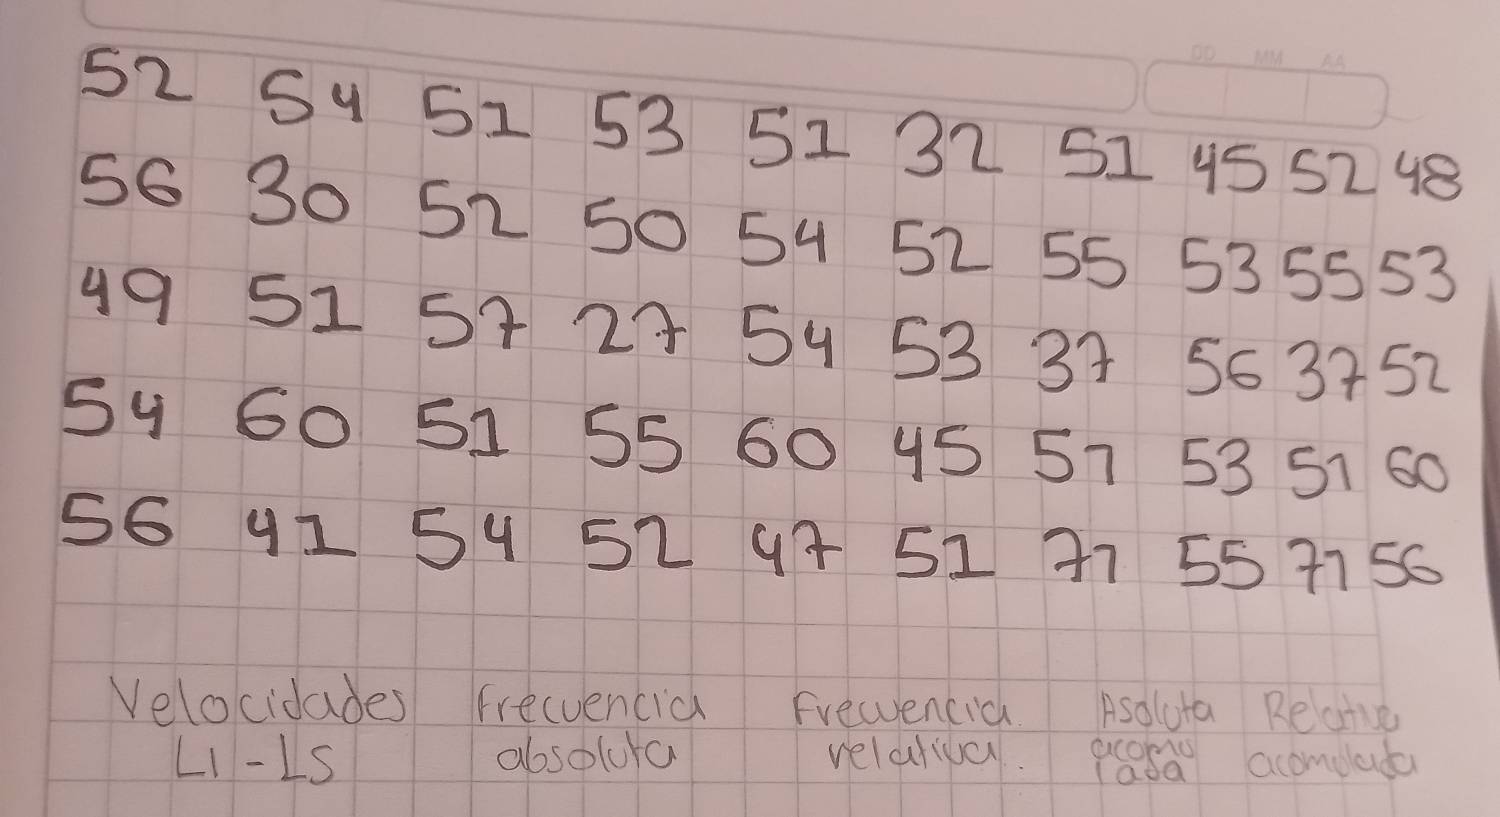 DD MM AA
52 54 51 53 51 32 51 45 52 48
56 30 52 50 54 52 55 53 55 53
49 51 57 27 54 53 37 56 37 52
54 60 51 55 60 45 57 53 51 60
56 41 54 52 47 51 71 55 71 56
Velocidades Frecuencia Frecuencia Asoluta Relativa
LI-LS absoluta relativa. acomu acomulada
lada